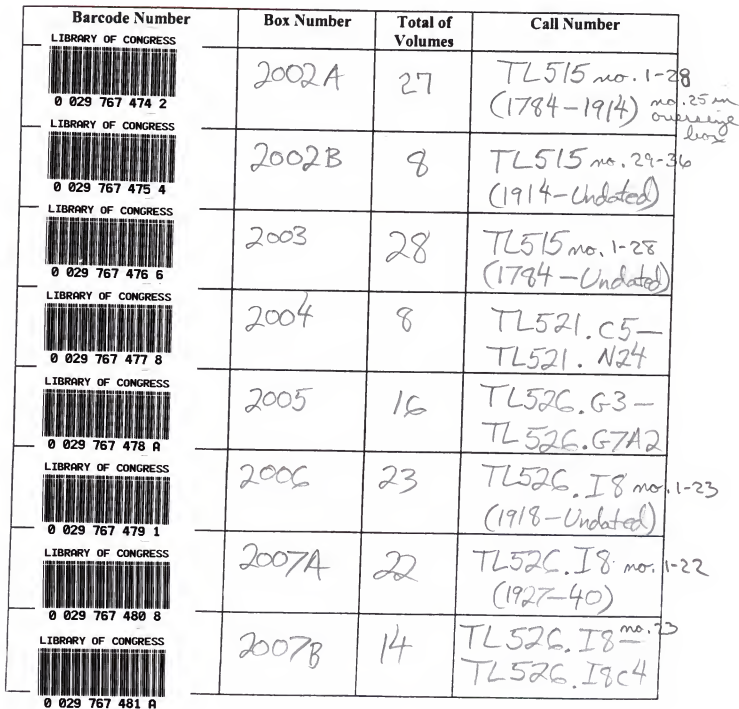 Barcode Number Box Number Total of Volumes Call Number
LIBRARY OF CONGRESS
0 029 767 474 2
2002A 27 TL515 no. 1-28
(1784-1914) no. 25 in oversize box
LIBRARY OF CONGRESS
0 029 767 475 4
2002B 8 TL515 no. 29-36
(1914-Undated)
LIBRARY OF CONGRESS
0 029 767 476 6
2003 28 TL515 no. 1-28
(1784-Undated)
LIBRARY OF CONGRESS
0 029 767 477 8
2004 8 TL521.C5-
TL521.N24
LIBRARY OF CONGRESS
0 029 767 478 A
2005 16 TL526.G3-
TL526.G7A2
LIBRARY OF CONGRESS
0 029 767 479 1
2006 23 TL526.I8 no. 1-23
(1918-Undated)
LIBRARY OF CONGRESS
0 029 767 480 8
2007A 22 TL526.I8 no. 1-22
(1927-40)
LIBRARY OF CONGRESS
0 029 767 481 A
2007B 14 TL526.I8 no. 23-
TL526.I8C4